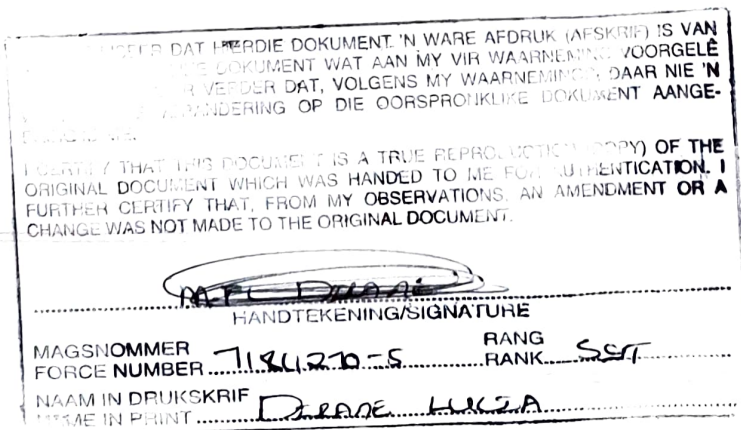 DAT HIERDIE DOKUMENT 'N WARE AFDRUK (AFSKRIF) IS VAN
DOKUMENT WAT AAN MY VIR WAARNEMING VOORGELÊ
VERDER DAT, VOLGENS MY WAARNEMINGS, DAAR NIE 'N
VERANDERING OP DIE OORSPRONKLIKE DOKUMENT AANGE-
I CERTIFY THAT THIS DOCUMENT IS A TRUE REPRODUCTION (COPY) OF THE
ORIGINAL DOCUMENT WHICH WAS HANDED TO ME FOR AUTHENTICATION. I
FURTHER CERTIFY THAT, FROM MY OBSERVATIONS, AN AMENDMENT OR A
CHANGE WAS NOT MADE TO THE ORIGINAL DOCUMENT.
HANDTEKENING/SIGNATURE
MAGSNOMMER RANG
FORCE NUMBER 7184270-5 RANK SGT
NAAM IN DRUKSKRIF
NAME IN PRINT LUCIA